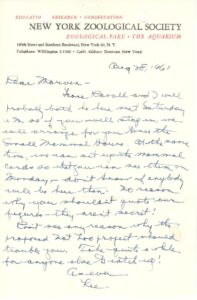 EDUCATION · RESEARCH · CONSERVATION
NEW YORK ZOOLOGICAL SOCIETY
ZOOLOGICAL PARK · THE AQUARIUM
185th Street and Southern Boulevard, New York 60, N. Y.
Telephone: WEllington 3-1500 · Cable Address: Zoological, New York
Aug 28, 1961
Dear Marvin -
Grace Davall and I will
probably both be here next Saturday
A.M. so if you will stop in, we
will arrange for you to see the
Small Mammal House. At the same
time, we can set up the mammal
cards so that you can see them on
Monday - I don't know if anybody
will be here then. No reason
why you shouldn't quote our
figures - they aren't secret!
Can't see any reason why the
proposed Nat Zoo project should
trouble you. That's quite a
for anyone else to catch up!
As ever
Lee